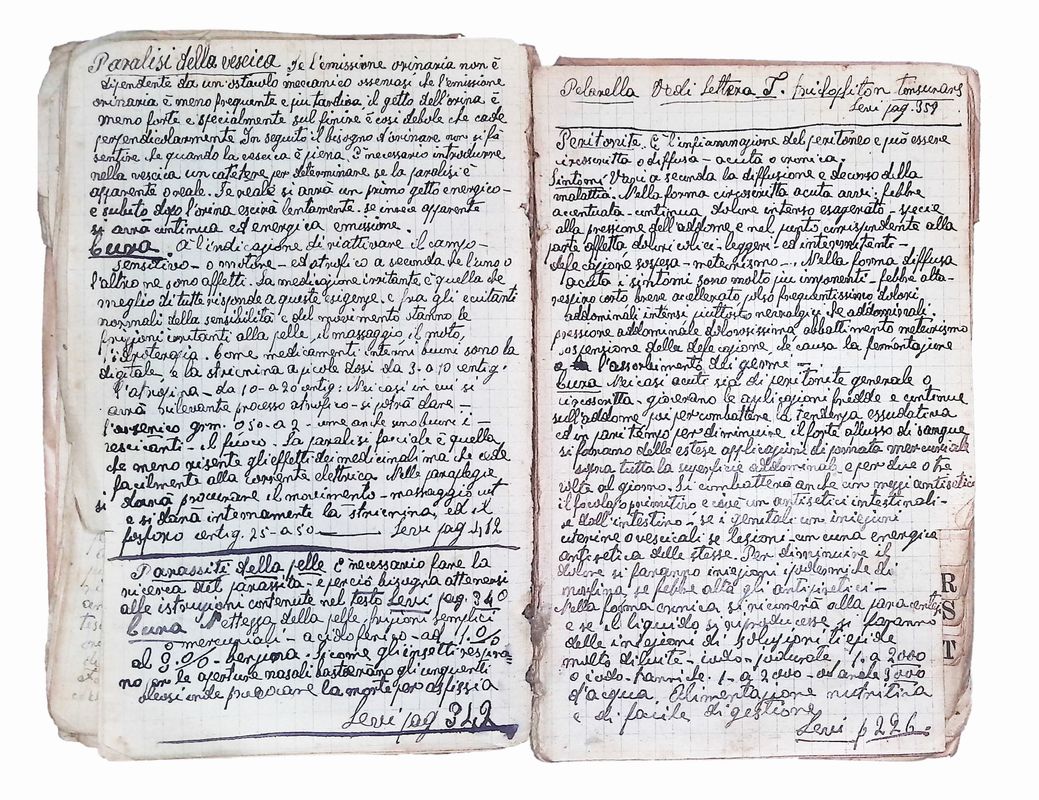 Paralisi della vescica Se l'emissione orinaria non è
dipendente da un ostacolo meccanico osservasi che l'emissione
orinaria è meno frequente e piu tardiva, il getto dell'orina è
meno forte e specialmente sul finire è così debole che cade
perpendicolarmente In seguito il bisogno d'orinare non si fa
sentire che quando la vescica è piena. È necessario introdurre
nella vescica un catetere per determinare se la paralisi è
apparente o reale. Se reale si avrà un primo getto energico -
e subito dopo l'orina escirà lentamente. se invece apparente
si avrà continua ed energica emissione.
Cura. A l'indicazione di riattivare il campo -
sensitivo - o motore - ed atrofico a seconda che l'uno o
l'altro ne sono affetti. La medicazione irritante è quella che
meglio di tutte risponde a queste esigenze. e fra gli eccitanti
normali della sensibilità e del movimento stanno le
frizioni irritanti alla pelle, il massaggio, il moto,
l'idroterapia. Come medicamenti interni buoni sono la
digitale, e la stricnina a picole dosi da 3. a 10 centig.
l'atropina - da 10 - a 20 centig. Nei casi in cui si
avrà rilevante processo atrofico - si potrà dare -
l'arsenico grm. 0.50 - a 2 - come anche sono buoni i -
vescicanti - il fuoco. La paralisi facciale è quella
che meno risente gli effetti dei medicinali ma che cede
facilmente alla corrente elettrica. Nelle paraplegie
si dovrà procurare il movimento - massaggio ect
e si darà internamente la stricnina, ed il
fosforo centig. 25 - a 50 Levi pag 412
Parassiti della pelle È necessario fare la
ricerca del parassita - e perciò bisogna attenersi
alle istruzioni contenute nel testo Levi pag. 340
Cura Nettezza della pelle, frizioni semplici
o mercuriali - acido fenico - al 1.%
al 3.% - benzina. Si come gli insetti respira
no per le aperture nasali basteranno gli unguenti
oleosi onde procurare la morte per asfissia
Levi pag 342
Pelarella Vedi lettera T. tricofiton tonsurans
Levi pag. 359
Peritonite. È l'infiammazione del peritoneo e può essere
circoscritta o diffusa - acuta o cronica.
Sintomi Varii a seconda la diffusione e decorso della
malattia. Nella forma circoscritta acuta avvi: febbre
accentuata - continua dolore intenso esagerato, specie
alla pressione dell'addome, e nel punto corrispondente alla
parte affetta dolori colici leggeri - ed intermittenti -
defecazione sospesa - meteorismo - . Nella forma diffusa
acuta i sintomi sono molto piu imponenti - febbre alta -
respiro corto breve accellerato polso frequentissimo dolori
addominali intensi piuttosto nevralgici che addominali.
pressione addominale dolorosissima abbattimento meteorismo
sospensione della defecazione, che causa la fermentazione
e l'assorbimento dei germi -
Cura Nei casi acuti sia di peritonite generale o
circoscritta - gioverano le aplicazioni fredde e continue
sull'addome, poi per combattere la tendenza essudativa
ed in pari tempo per diminuire il forte afflusso di sangue
si faranno delle estese applicazioni di pomata mercuriale
sopra tutta la superficie addominale e per due o tre
volte al giorno. Si combatterà anche con mezzi antisetici
il focolaio primitivo e cioè con antisetici intestinali -
se dall'intestino; se i genitali con iniezioni
uterine o vescicali se lesioni - con cura energica
antisetica delle stesse. Per diminuire il
dolore si faranno iniezioni ipodermiche di
morfina, se febbre alta gli antipiretici -
Nella forma cronica si ricorerà alla paracentesi
e se il liquido si riproducesse si faranno
delle iniezioni di soluzioni tiepide
molto diluite - iodo - iodurate 1. a 2000
o iodo - tanniche. 1 - a 2000 - od anche 3000
d'acqua. Alimentazione nutritiva
e di facile digestione
Levi p 226.
R
S
T